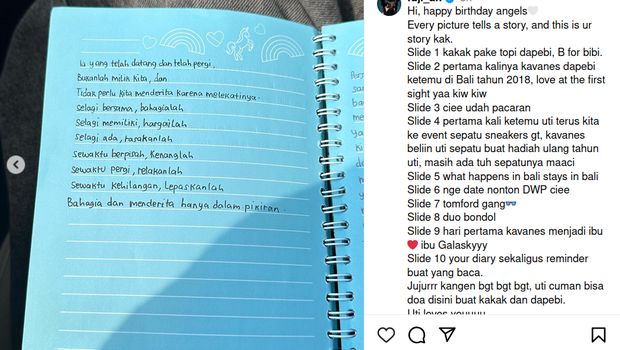 Ia yang telah datang dan telah pergi,
Bukanlah milik kita, dan
Tidak perlu kita menderita karena melekatinya.
selagi bersama, bahagialah
selagi memiliki, hargailah
selagi ada, rasakanlah
sewaktu berpisah, kenanglah
sewaktu pergi, relakanlah
sewaktu kehilangan, lepaskanlah
Bahagia dan menderita hanya dalam pikiran.
Hi, happy birthday angels🤍
Every picture tells a story, and this is ur
story kak.
Slide 1 kakak pake topi dapebi, B for bibi.
Slide 2 pertama kalinya kavanes dapebi
ketemu di Bali tahun 2018, love at the first
sight yaa kiw kiw
Slide 3 ciee udah pacaran
Slide 4 pertama kali ketemu uti terus kita
ke event sepatu sneakers gt, kavanes
beliin uti sepatu buat hadiah ulang tahun
uti, masih ada tuh sepatunya maaci
Slide 5 what happens in bali stays in bali
Slide 6 nge date nonton DWP ciee
Slide 7 tomford gang🕶️
Slide 8 duo bondol
Slide 9 hari pertama kavanes menjadi ibu
❤️ ibu Galaskyyy
Slide 10 your diary sekaligus reminder
buat yang baca.
Jujurrr kangen bgt bgt bgt, uti cuman bisa
doa disini buat kakak dan dapebi.
Uti loves youuuu